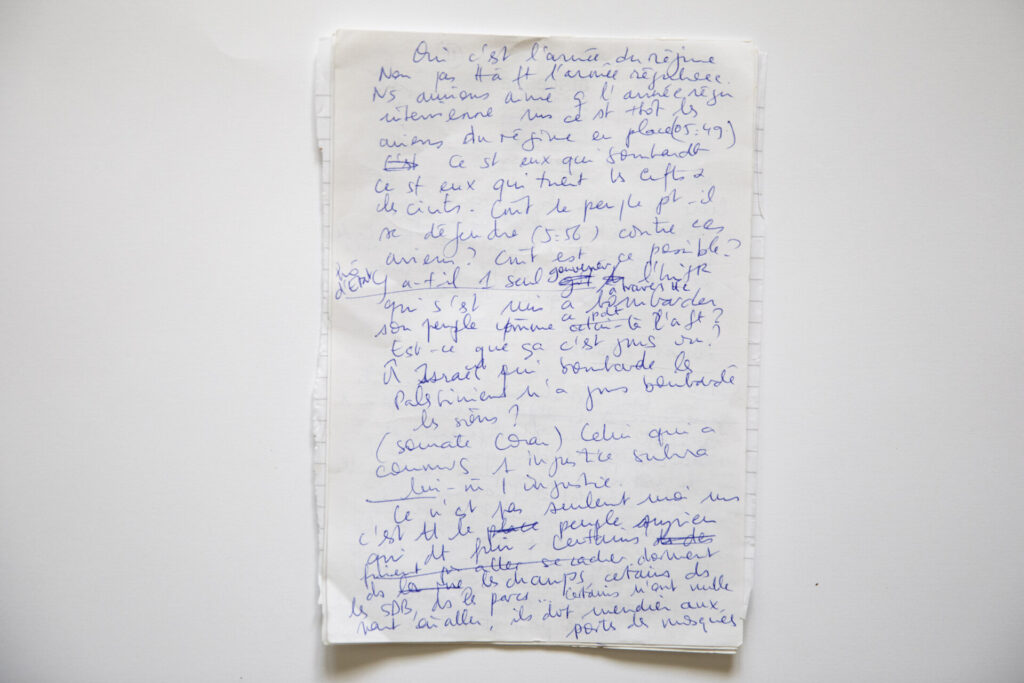 Oui c'est l'armée du régime
Non pas tt à ft l'armée régulière.
Ns aurions aimé q l'armée régu
intervienne ms ce st ttôt les
avions du régime en place (05:49)
C'est ce st eux qui bombardt
Ce st eux qui tuent les enfts &
des civils. Cmt le peuple pt-il
se défendre (5:56) contre ces
avions? Cmt est-ce possible?
d'Etat Y a-t-il 1 seul gouverneur l'
à travers
qui s'est mis à bombarder
son peuple comme celui-là l'a ft?
Est-ce que ça c'est jms vu?
Israël qui bombarde les
Palestiniens n'a jms bombardé
les siens?
(sourate Coran) Celui qui a
commis 1 injustice subira
lui-m 1 injustice.
Ce n'est pas seulemt moi ms
c'est tt le place peuple syrien
qui dt fuir. Certains
fuient pr aller se cacher dorment
ds la les champs, certains ds
les SDB, ds le parcs... Certains n'ont nulle
part où aller, ils dot mendier aux
portes des mosquées